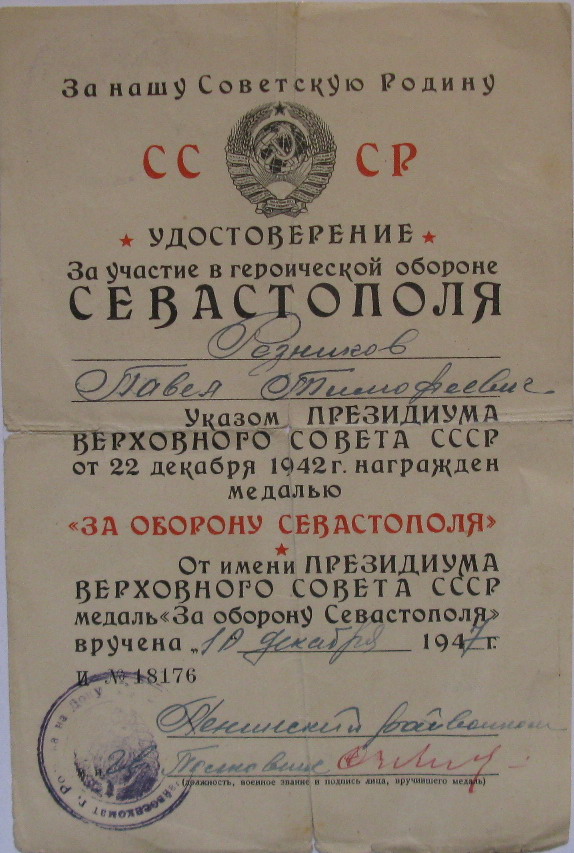 За нашу Советскую Родину
СС СР
УДОСТОВЕРЕНИЕ
За участие в героической обороне
СЕВАСТОПОЛЯ
Резников
Павел Тимофеевич
Указом ПРЕЗИДИУМА
ВЕРХОВНОГО СОВЕТА СССР
от 22 декабря 1942 г. награжден
медалью
«ЗА ОБОРОНУ СЕВАСТОПОЛЯ»
От имени ПРЕЗИДИУМА
ВЕРХОВНОГО СОВЕТА СССР
медаль «За оборону Севастополя»
вручена „10 декабря 1947 г.
И № 18176
Ленинский райвоенком
(должность, военное звание и подпись лица, вручившего медаль)